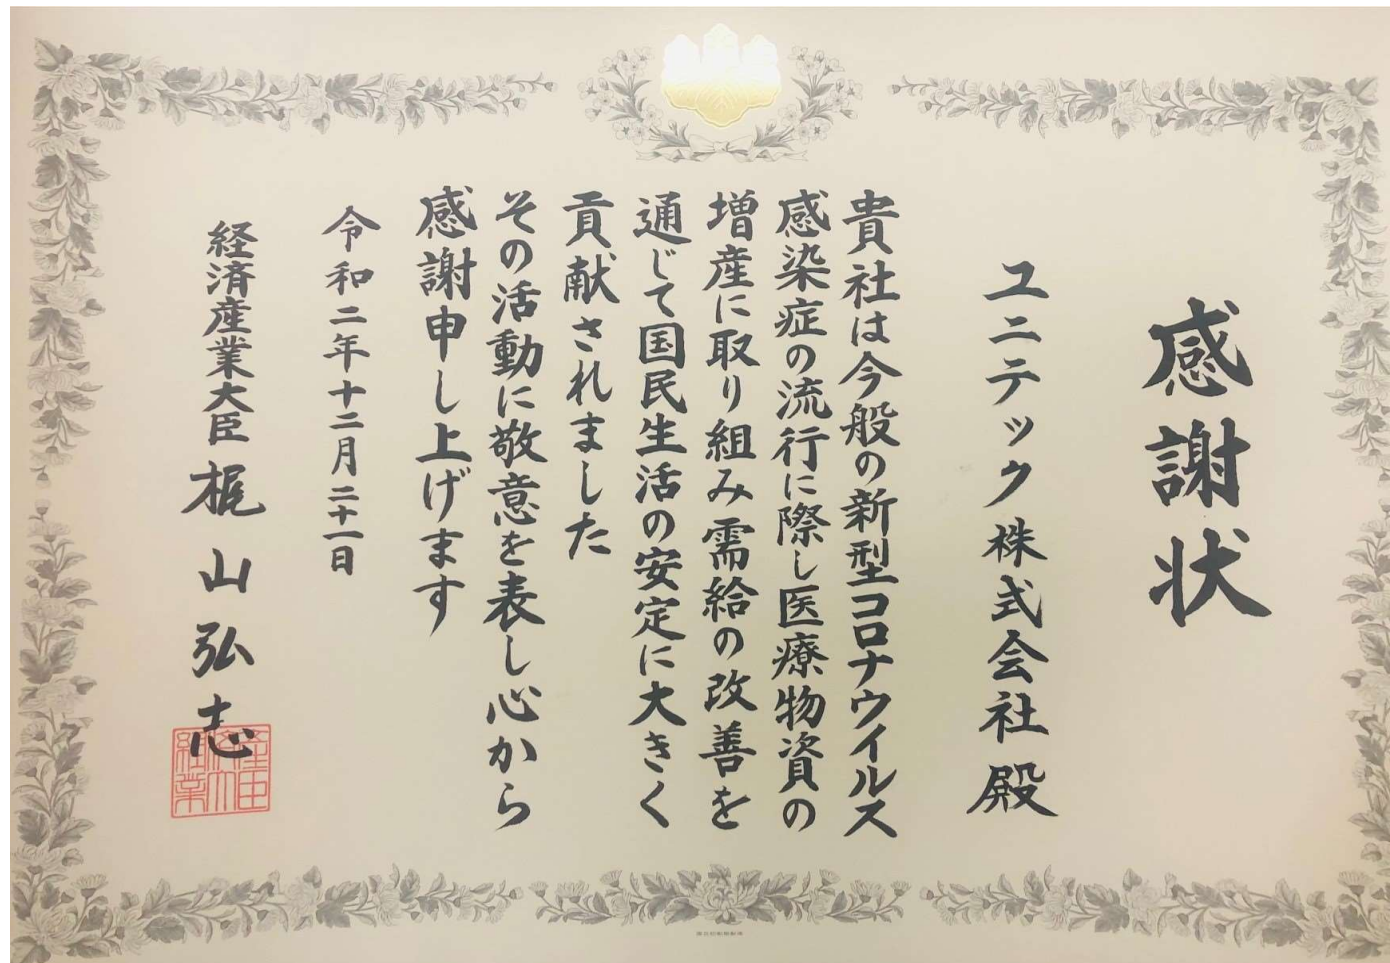 感謝状
ユニテック株式会社殿
貴社は今般の新型コロナウイルス
感染症の流行に際し医療物資の
増産に取り組み需給の改善を
通じて国民生活の安定に大きく
貢献されました
その活動に敬意を表し心から
感謝申し上げます
令和二年十二月二十一日
経済産業大臣 梶山弘志